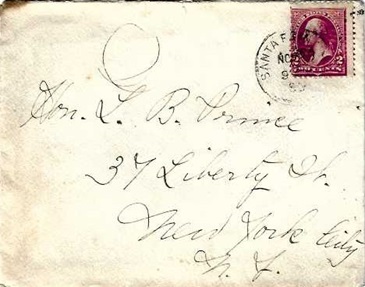 SANTA FE
NO
9
90
2
2
Hon. L. B. Prince
37 Liberty St.
New York City
N. Y.